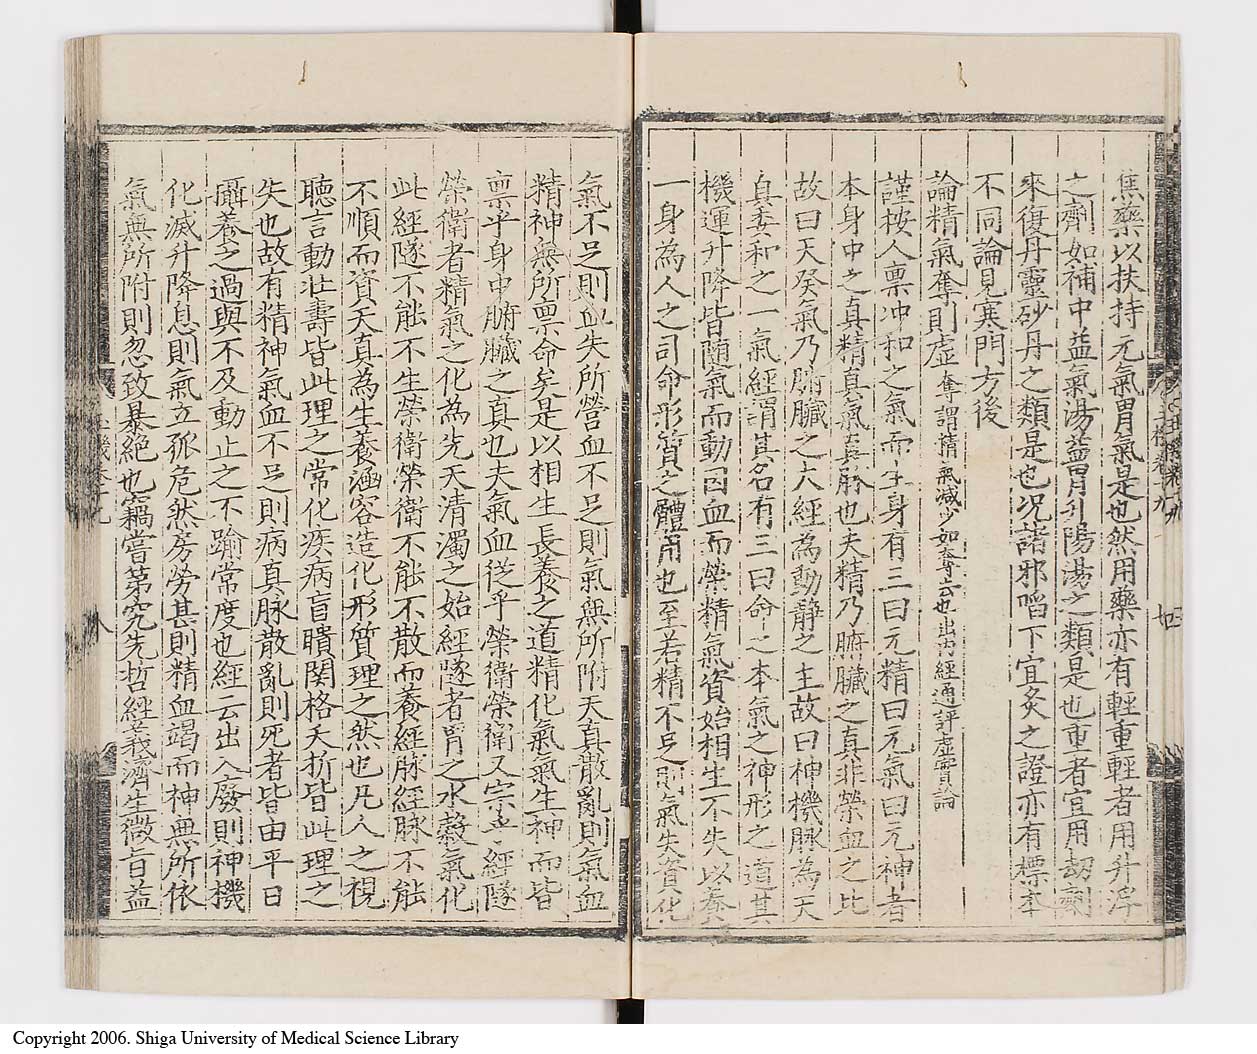 焦藥以扶持元氣胃氣是也然用藥亦有輕重輕者用升浮
之劑如補中益氣湯益胃升陽湯之類是也重者宜用刼劑
來復丹靈砂丹之類是也况諸邪㗖下宜灸之證亦有標本
不同論見寒門方後
論精氣奪則虛奪謂精氣减少如奪去也出內經通評虛實論
謹按人禀冲和之氣而生身有三曰元精曰元氣曰元神者
本身中之真精真氣真脉也夫精乃腑臟之真非榮血之比
故曰天癸氣乃腑臟之大經為動静之主故曰神機脉為天
真委和之一氣經謂其名有三曰命之本氣之神形之道其
機運升降皆随氣而動因血而榮精氣資始相生不失以養
一身為人之司命形質之體用也至若精不足則氣失資化
氣不足則血失所營血不足則氣無所附天真散亂則氣血
精神無所禀命矣是以相生長養之道精化氣氣生神而皆
禀乎身中腑臟之真也夫氣血従乎榮衛榮衛又宗乎經隧
榮衛者精氣之化為先天清濁之始經隧者胃之水榖氣化
此經隧不能不生榮衛榮衛不能不散而養經脉經脉不能
不順而資天真為生養涵容造化形質理之然也凡人之視
聽言動壮壽皆此理之常化疾病盲聵関格夭折皆此理之
失也故有精神氣血不足則病真脉散亂則死者皆由平日
攝養之過與不及動止之不踰常度也經云出入廢則神機
化滅升降息則氣立孤危然房勞甚則精血竭而神無所依
氣無所附則忽致暴絶也竊嘗第究先哲經義濟生微㫖益
八
Copyright 2006. Shiga University of Medical Science Library